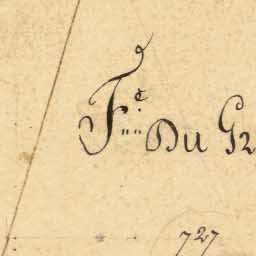 Fc DU Gr
727